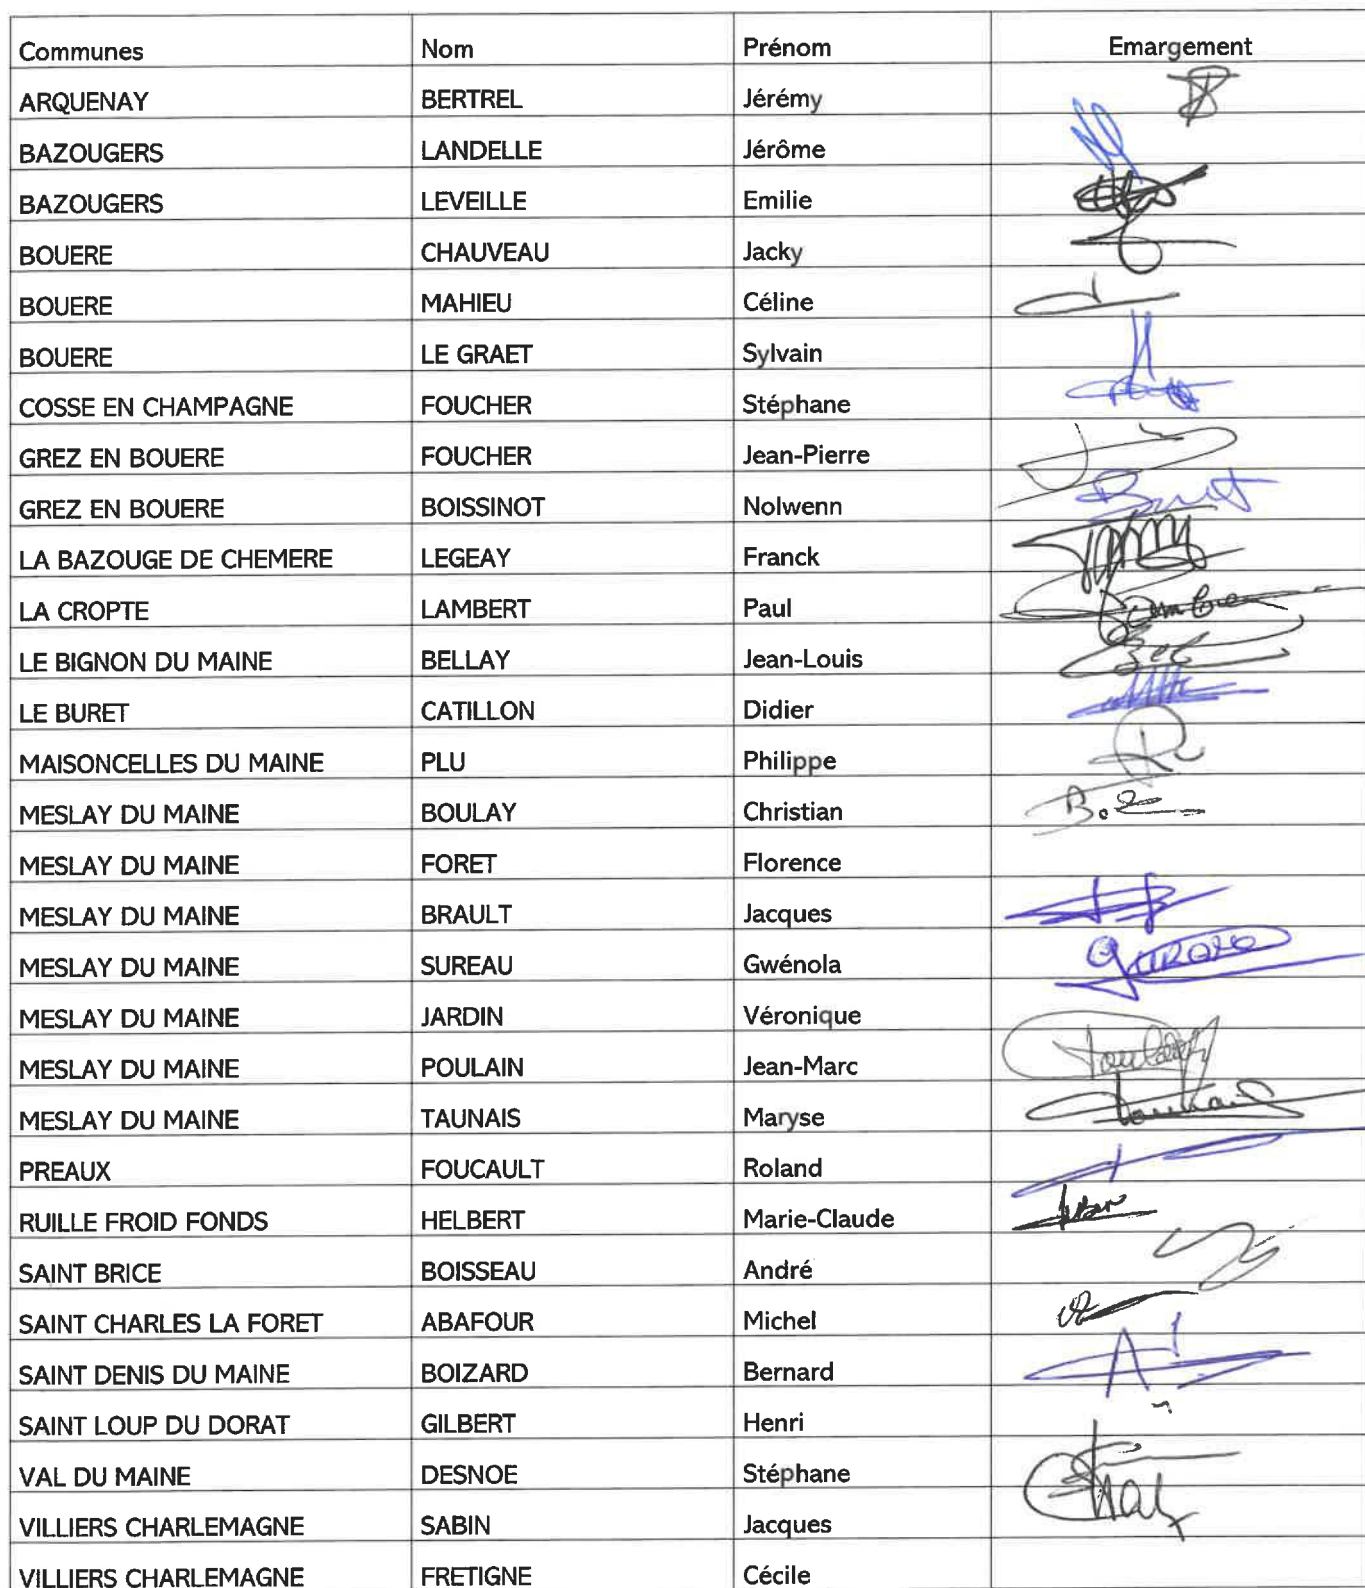 Communes Nom Prénom Emargement
ARQUENAY BERTREL Jérémy
BAZOUGERS LANDELLE Jérôme
BAZOUGERS LEVEILLE Emilie
BOUERE CHAUVEAU Jacky
BOUERE MAHIEU Céline
BOUERE LE GRAET Sylvain
COSSE EN CHAMPAGNE FOUCHER Stéphane
GREZ EN BOUERE FOUCHER Jean-Pierre
GREZ EN BOUERE BOISSINOT Nolwenn
LA BAZOUGE DE CHEMERE LEGEAY Franck
LA CROPTE LAMBERT Paul
LE BIGNON DU MAINE BELLAY Jean-Louis
LE BURET CATILLON Didier
MAISONCELLES DU MAINE PLU Philippe
MESLAY DU MAINE BOULAY Christian
MESLAY DU MAINE FORET Florence
MESLAY DU MAINE BRAULT Jacques
MESLAY DU MAINE SUREAU Gwénola
MESLAY DU MAINE JARDIN Véronique
MESLAY DU MAINE POULAIN Jean-Marc
MESLAY DU MAINE TAUNAIS Maryse
PREAUX FOUCAULT Roland
RUILLE FROID FONDS HELBERT Marie-Claude
SAINT BRICE BOISSEAU André
SAINT CHARLES LA FORET ABAFOUR Michel
SAINT DENIS DU MAINE BOIZARD Bernard
SAINT LOUP DU DORAT GILBERT Henri
VAL DU MAINE DESNOE Stéphane
VILLIERS CHARLEMAGNE SABIN Jacques
VILLIERS CHARLEMAGNE FRETIGNE Cécile